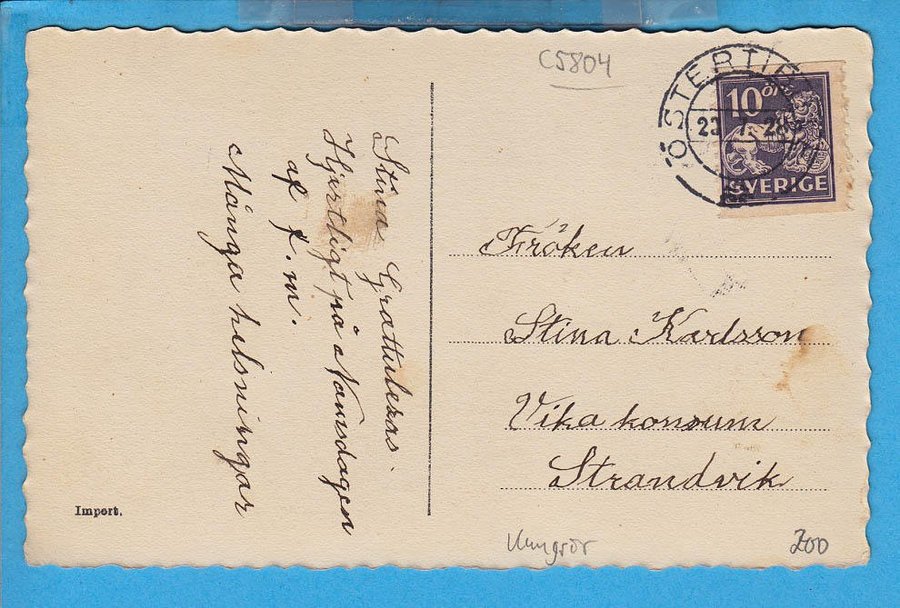 C5804
ÖSTERTI
23 7 28
10 ÖRE
SVERIGE
Stina Gratuleras
Hjertligt på Namsdagen
af f.m.
Många helsningar
Fröken
Stina Karlsson
Vika konsum
Strandvik
Import.
200